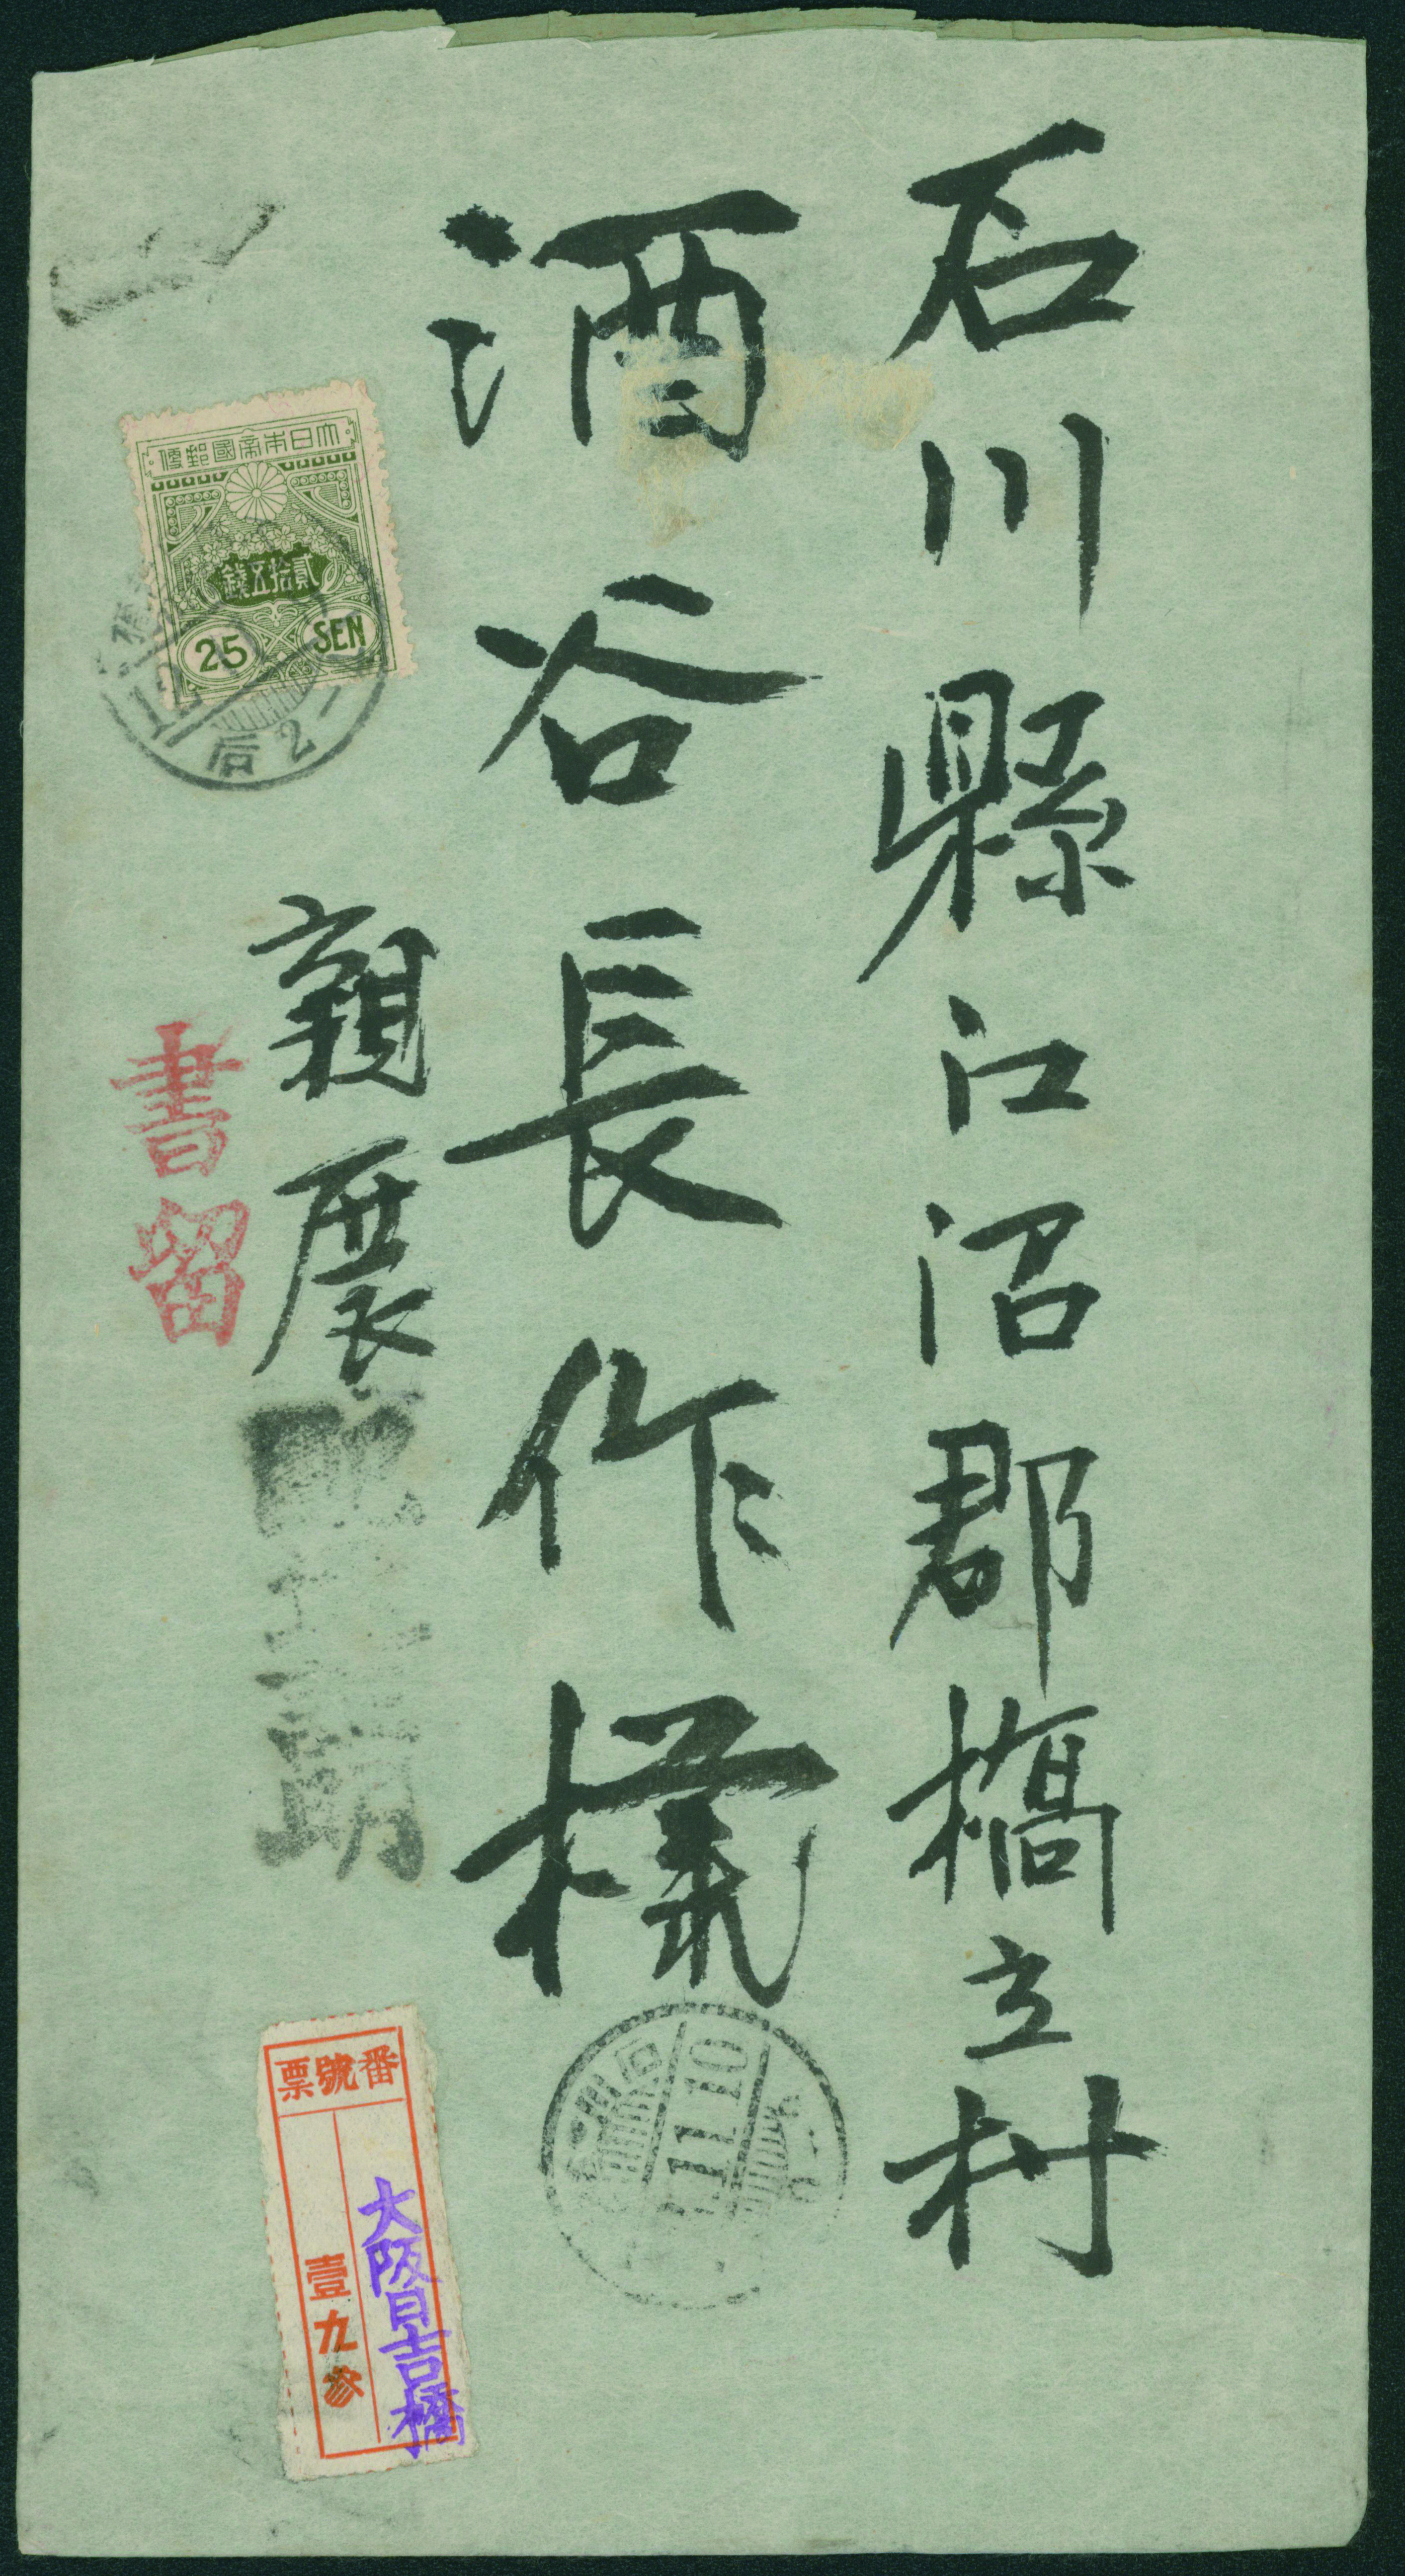 石川縣江沼郡橋立村
酒谷長作様
親展
書留
大日本帝國郵便
貳拾五錢
25 SEN
后 2-
11.10
番號票
大阪日吉橋
壹九参